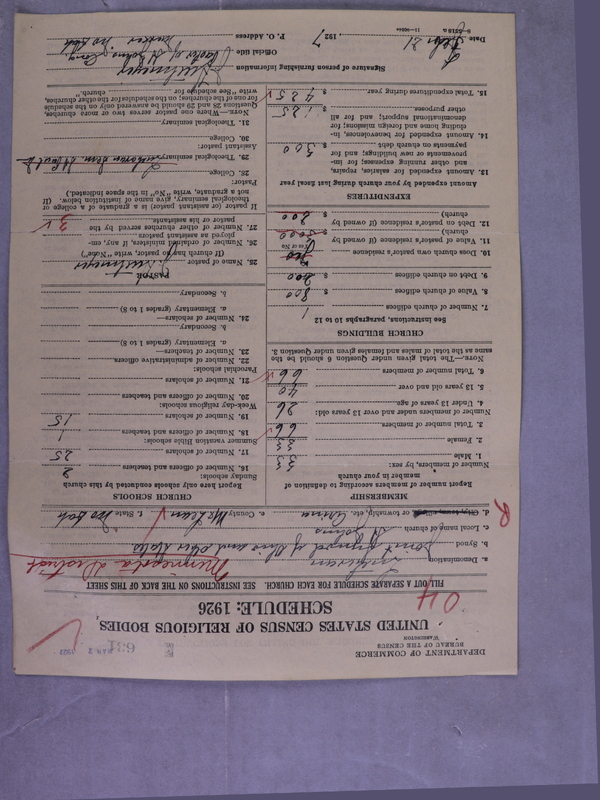 DEPARTMENT OF COMMERCE
BUREAU OF THE CENSUS
WASHINGTON
631
UNITED STATES CENSUS OF RELIGIOUS BODIES,
SCHEDULE: 1926
04
FILL OUT A SEPARATE SCHEDULE FOR EACH CHURCH. SEE INSTRUCTIONS ON THE BACK OF THIS SHEET
Minnesota District
a. Denomination Lutheran
b. Synod Joint Synod of Ohio and other States
c. Local name of church St Johns
d. or township, etc.
e. County McLean
f. State No Dak
R
MEMBERSHIP
Report number of members according to definition of
member in your church
Number of members, by sex:
1. Male 33
2. Female 33
3. Total number of members. 66
Number of members under and over 13 years old:
4. Under 13 years of age 26
5. 13 years old and over 40
6. Total number of members 66
NOTE.—The total given under Question 6 should be the
same as the total of males and females given under Question 3.
CHURCH BUILDINGS
See instructions, paragraphs 10 to 12
7. Number of church edifices 1
8. Value of church edifices $ 800
9. Debt on church edifices $ 200
10. Does church own pastor's residence
(Yes or No)
11. Value of pastor's residence (if owned by
church) $ 5000
12. Debt on pastor's residence (if owned by
church) $ 800
EXPENDITURES
Amount expended by your church during last fiscal year
13. Amount expended for salaries, repairs,
and other running expenses; for im-
provements or new buildings; and for
payments on church debt $ 300
14. Amount expended for benevolences, in-
cluding home and foreign missions; for
denominational support; and for all
other purposes $ 125
15. Total expenditures during year $ 425
CHURCH SCHOOLS
Report here only schools conducted by this church
Sunday schools:
16. Number of officers and teachers 2
17. Number of scholars 25
Summer vacation Bible schools:
18. Number of officers and teachers 1
19. Number of scholars 15
Week-day religious schools:
20. Number of officers and teachers
21. Number of scholars
Parochial schools:
22. Number of administrative officers
23. Number of teachers—
a. Elementary (grades 1 to 8)
b. Secondary
24. Number of scholars—
a. Elementary (grades 1 to 8)
b. Secondary
PASTOR
25. Name of pastor
(If church has no pastor, write "None")
26. Number of ordained ministers, if any, em-
ployed as assistant pastors
27. Number of other churches served by the
pastor or his assistants 3
If pastor (or assistant pastor) is a graduate of a college or
theological seminary, give name of institution below. (If
not a graduate, write "No" in the space indicated.)
Pastor:
28. College
29. Theological seminary Lutheran Sem. St Paul
Assistant pastor:
30. College
31. Theological seminary
NOTE.—Where one pastor serves two or more churches,
Questions 25 and 29 should be answered only on the schedule
for one of the churches; on the schedules for the other churches,
write "See schedule for church."
Signature of person furnishing information
Official title Pastor of St Johns Cong
P. O. Address No Dak
Date 21, 1927
8—5218 a